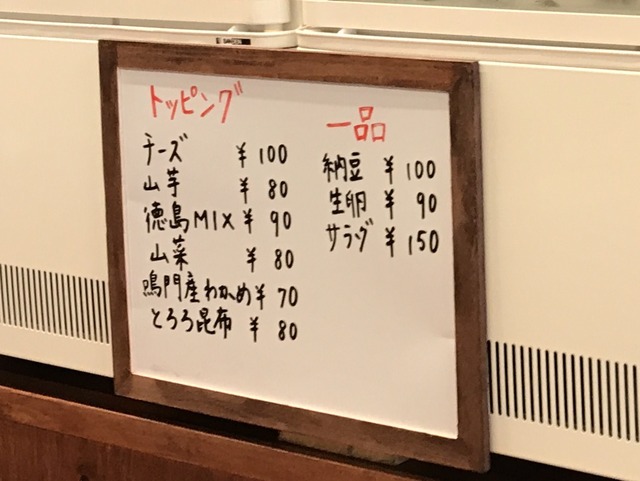 トッピング
チーズ ¥100
山芋 ¥80
徳島MIX ¥90
山菜 ¥80
鳴門産わかめ ¥70
とろろ昆布 ¥80
一品
納豆 ¥100
生卵 ¥90
サラダ ¥150